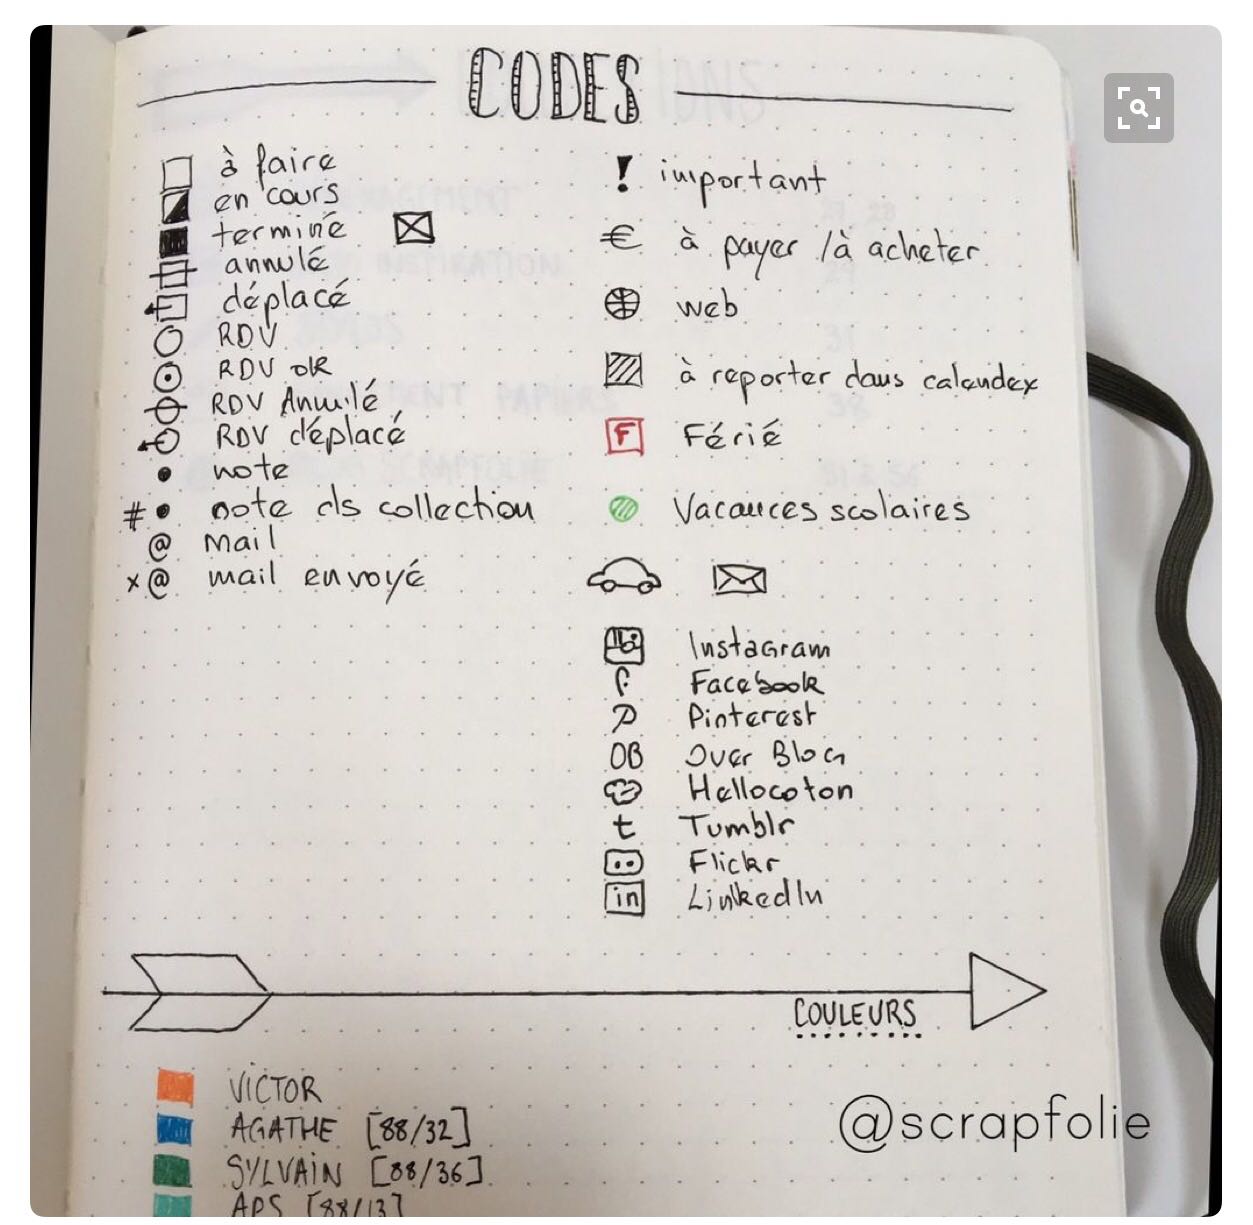 CODES
à faire
en cours
terminé
annulé
déplacé
RDV
RDV ok
RDV Annulé
RDV déplacé
note
# note ds collection
@ mail
x @ mail envoyé
! important
€ à payer /à acheter
web
à reporter dans calendex
F Férié
Vacances scolaires
Instagram
f Facebook
P Pinterest
OB Over Blog
Hellocoton
t Tumblr
Flickr
in LinkedIn
COULEURS
VICTOR
AGATHE [88/32]
SYLVAIN [88/36]
APS [88/13]
@scrapfolie